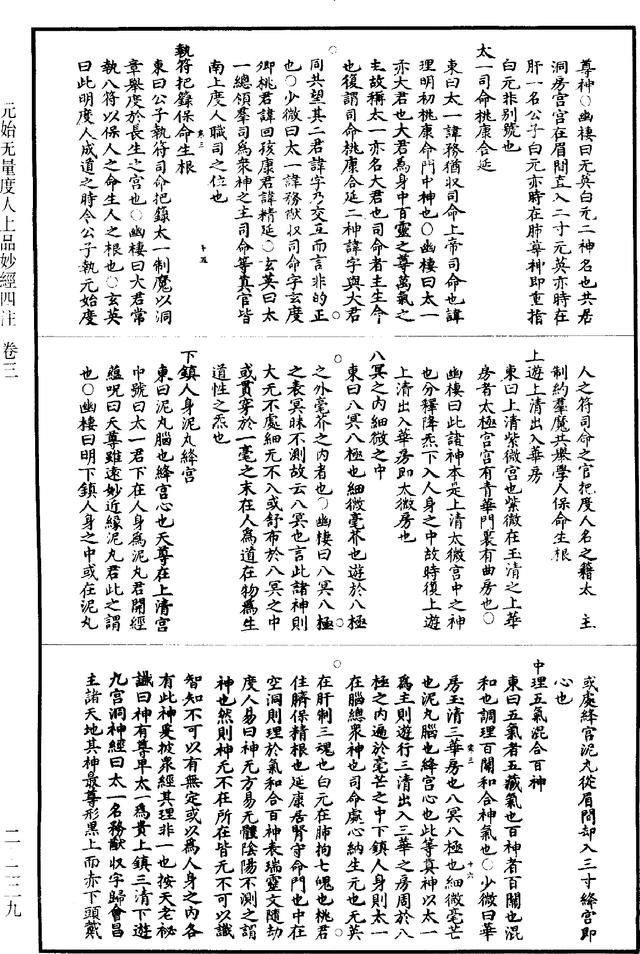 尊神○幽棲曰无英白元二神名也共居
洞房宮宮在眉間直入二寸元英亦時在
肝一名公子白元亦時在肺尊神即重指
白元非别號也
太一司命桃康合延
東曰太一諱務猶収司命上帝司命也諱
理明初桃康命門中神也○幽棲曰太一
亦大君也大君為身中百靈之尊萬氣之
主故稱太一亦名大君也司命者主生今
也復謂司命桃康合延二神諱字與大君
同共望其二君諱字乃交互而言非的正
也○少微曰太一諱務猷収司命字玄度
卿桃君諱回孩康君諱精延○玄英曰太
一總領羣司為衆神之主司命等真官皆
南上度人職司之位也
執符把籙保命生根
東曰公子執符司命把錄太一制魔以洞
章舉度於長生之宮也○幽棲曰大君常
執八符以保人之命生人之根也○玄英
曰此明度人成道之時令公子執元始度
人之符司命之官把度人名之籍太 主
制約羣魔共舉學人保命生根
上遊上清出入華房
東曰上清紫微宮也紫微在玉清之上華
房者太極宮宮有青華門裏有曲房也○
幽棲曰此諸神本是上清太微宮中之神
也分釋降炁下入人身之中故時復上遊
上清出入華房即太微房也
八冥之内細微之中
東曰八冥八極也細微毫芥也遊於八極
之外毫芥之内者也○幽棲曰八冥八極
之表冥昧不測故云八冥也言此諸神則
大无不處細无不入或舒布於八冥之中
或貫穿於一毫之末在人為道在物為生
道性之炁也
下鎮人身泥丸絳宮
東曰泥丸腦也絳宮心也天尊在上清宮
中號曰太一君下在人身為泥丸君開經
蘊呪曰天尊雖遠妙近緣泥丸君此之謂
也○幽棲曰明下鎮人身之中或在泥丸
或處絳宮泥丸從眉間却入三寸絳宮即
心也
中理五氣混合百神
東曰五氣者五藏氣也百神者百關也混
和也調理百關和合神氣也○少微曰華
房玉清三華房也八冥八極也細微毫芒
也泥丸腦也絳宮心也此等真神以太一
為主則遊行三清出入三華之房周於八
極之内遍於毫芒之中下鎮人身則太一
在腦總衆神也司命處心納生元也无英
在肝制三魂也白元在肺拘七魄也桃君
住臍保精根也延康居腎守命門也中在
空洞則理於氣和合百神表瑞靈文隨劫
度人易曰神无方易无體陰陽不測之謂
神也然則神无不在所在皆无不可以識
智知不可以有無定或以為人身之内各
有此神是披衆經其理非一也按天老祕
讖曰神有尊卑太一為貴上鎮三清下遊
九宮洞神經曰太一名務猷収字歸會昌
主諸天地其神最尊形黑上而赤下頭戴
元始无量度人上品妙經四注 卷三
二—二二九